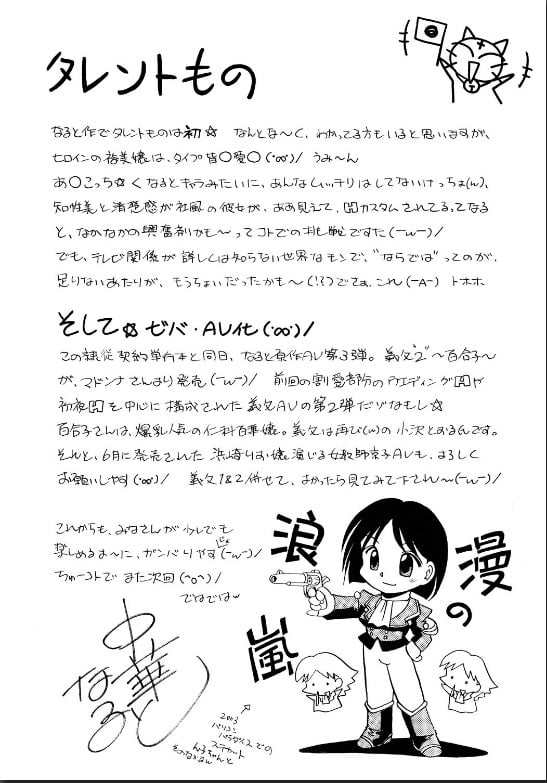 タレントもの
なると作でタレントものは初☆ なんとな〜く、わかってる方もいると思いますが、
ヒロインの裕美嬢は、タイプ皆〇愛〇(˙oo˙)/ うみ〜ん
あ〇こっち☆くなるとキャラみたいに、あんなしっかりはしてないけっちょ(w)、
知性美と清楚感が社風の彼女が、ああ見えて、囚カスタムされてるってなる
と、なかなかの興奮剤かも〜ってコトでの挑戦ですた(ーωー)/
でも、テレビ関係が詳しくは知らない世界なモンで、"ならでは"ってのが、
足りないあたりが、もうちょいだったかも〜(!?)でてぁ、これ(ーAー) トホホ
そして☆ ゼバ・AV化(˙oo˙)/
この隷従契約単行本と同日、なると原作AV第3弾。義父"2"〜百合子〜
が、マドンナさんより発売(ーωー)/ 前回の割愛者防のウエディング囚や
初夜囚を中心に構成された義父AVの第2弾だゾなもし☆
百合子さんは、爆乳人気の仁科百華嬢。義父は再び(w)の小沢とおるんです。
それと、6月に発売された 浜崎りお嬢演じる女教師京子AVも、よろしく
お願いしやす(˙oo˙)/ 義父1&2併せて、よかったら見てみて下され〜(ーωー)/
これからも、みなさんが少しでも
楽しめるよーに、ガンバりやす(ーωー)/
ちゅーコトで また次回(^o^)/
でわでわw
浪漫の嵐
中華なると
2003
パソコン
パラダイスでの